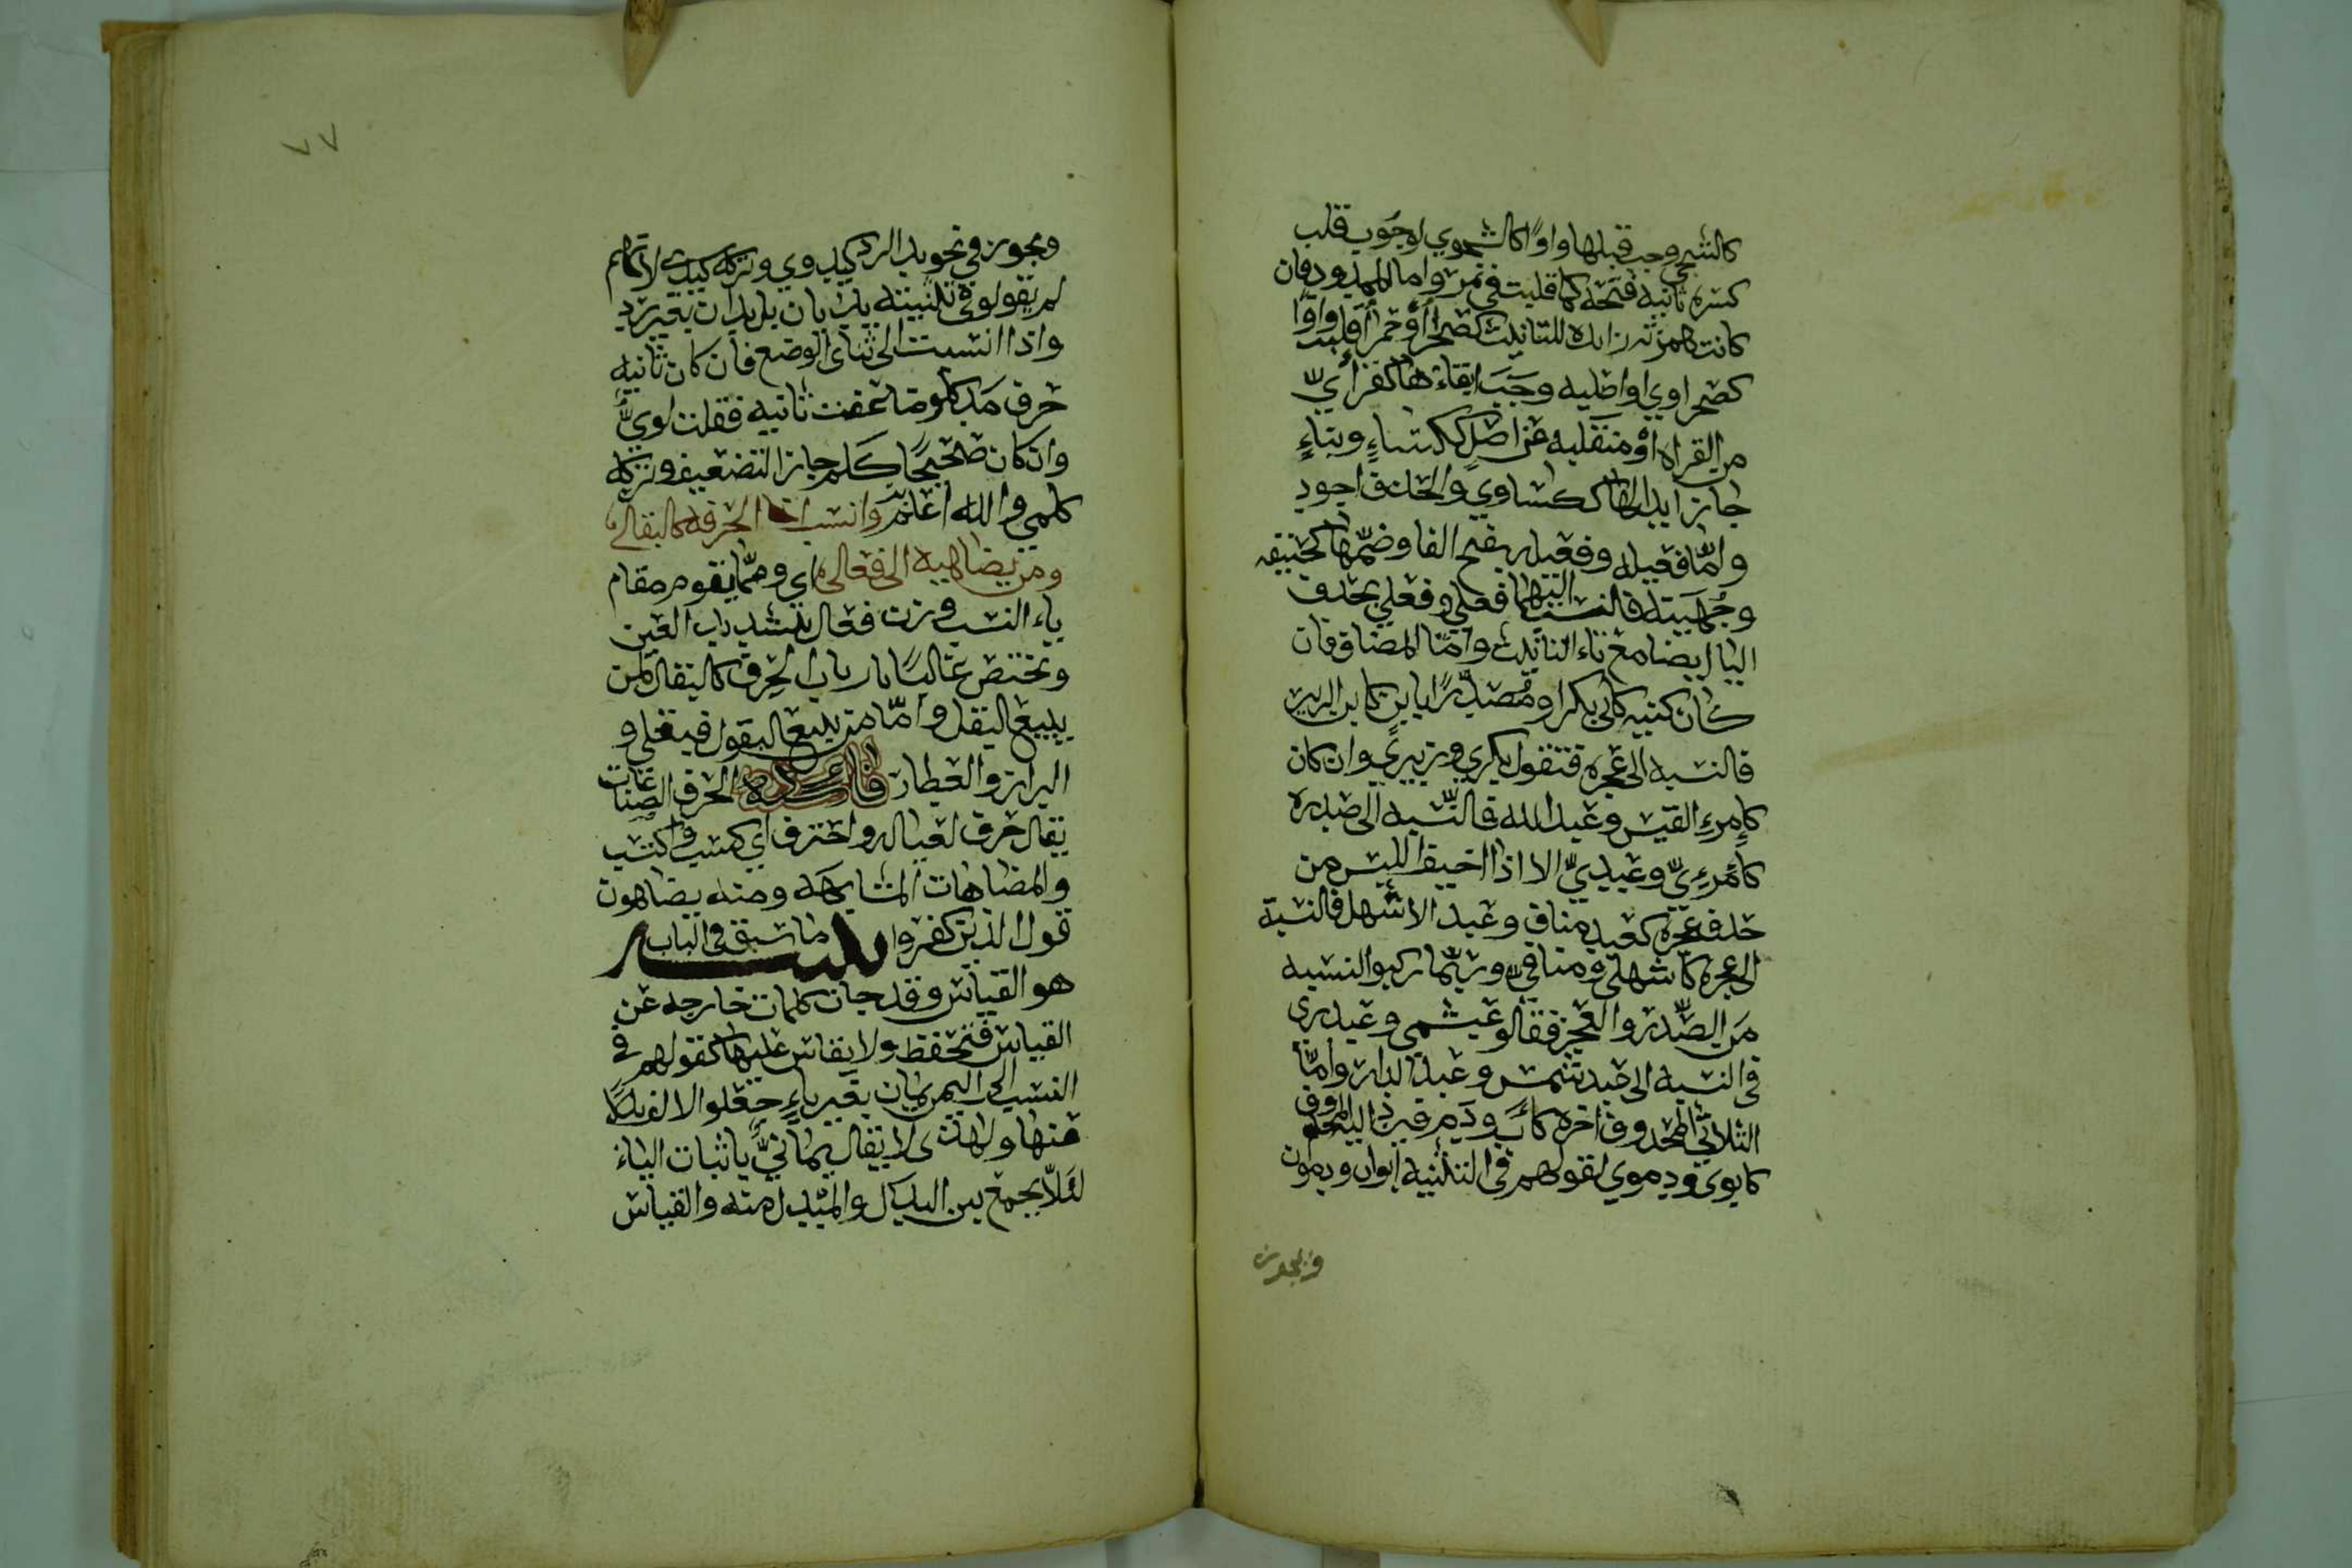 كالشجي وجب قبلها واوًا كالشجوي لوجوب قلب
كسرة ثانيه فتحة كما قلبت في نمر واما الممدود فان
كانت همزته زايده للتانيث كصحرا او حمرا قلبت واوًا
كصحراوي او اصليه وجب ابقاءها كقرأيّ
من القراه او منقلبه عن اصل ككساءٍ وبناءٍ
جاز ابدالها ككساوي والحذف اجود
وامّا فعيله وفعيله بفتح الفا وضمّها كحنيفه
وجُهَينه فالنسب اليهما فعلي وفعلي بحذف
اليا ايضا مع تاء التانيث وامّا المضاف فان
كان كنيه كابي بكر او مُصدّرًا بابن كابن الزبير
فالنسبه الى عجزه فتقول بكري وزبيري وان كان
كامرءِ القيس وعبد الله فالنّسبه الى صدره
كامرءِيّ وعبديّ الا اذا اخيف اللبس من
حذف عجزه كعبد مناف وعبد الاشهل فالنسبة
الى عجزه كاشهلي ومنافيّ وربّما ركبوا النسبه
من الصّدر والعجز فقالو عبشمي وعبدري
في النسبه الى عبد شمس وعبد الدار وامّا
الثلاثي المحذوف اخره كاب ودم فيرد اليه المحذوف
كابوي ودموي لقولهم في التثنيه ابوان ودموان
ويجوز
٧٧
ويجوز في نحو يد الرد كيدوي وتركه كيدي لانهم
لم يقولو في تثنيته يديان بل يدان بغير رد
واذا انسبت الى ثنائي الوضع فان كان ثانيه
حرف مد كلو ضاعفت ثانيه فقلت لويّ
وان كان صحيحًا ككم جاز التضعيف وتركه
كلمي والله اعلم وانسب اخا الحرفه كالبقالِ
ومن يضاهيه الى فعالِ اي وممّا يقوم مقام
ياء النسب وزن فعال بتشديد العين
وتختص غالبًا بارباب الحرف كالبقال لمن
يبيع البقل وامّا من يبيع البقول فبقلي و
البزاز والعطار فايده الحرف الصناعات
يقال حرف لعياله واحترف اي كسب واكتسب
والمضاهات المشابهه ومنه يضاهون
قول الذين كفروا تنبيه ما سبق في الباب
هو القياس وقد جات كلمات خارجه عن
القياس فتحفظ ولا يقاس عليها كقولهم في
النسب الى اليمن يمان بغير ياءٍ جعلوا الالف بدلًا
منها ولهذى لا يقال يمانيٌّ باثبات الياء
لئلّا يجمع بين البدل والمبدل منه والقياس